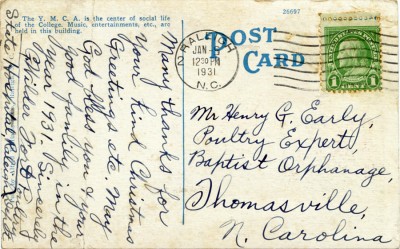 The Y. M. C. A. is the center of social life
of the College. Music, entertainments, etc., are
held in this building.
26697
POST
CARD
RALEIGH
JAN
12 30 PM
1931
N.C.
1
Many thanks for
Your kind Christmas
Greetings etc. May
God bless you & your
good family in the
year 1931. Sincerely
State Hospital Raleigh
Mr Henry G. Early,
Poultry Expert,
Baptist Orphanage,
Thomasville,
N. Carolina